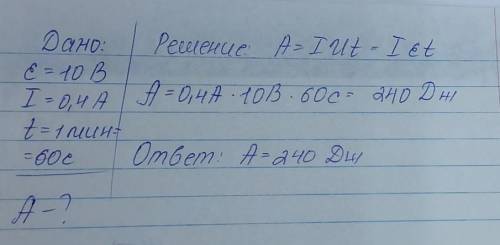 Дано:
ε = 10 В
I = 0,4 А
t = 1 мин =
= 60 с
А - ?
Решение: A = I U t = I ε t
A = 0,4 А · 10 В · 60 с = 240 Дж
Ответ: А = 240 Дж